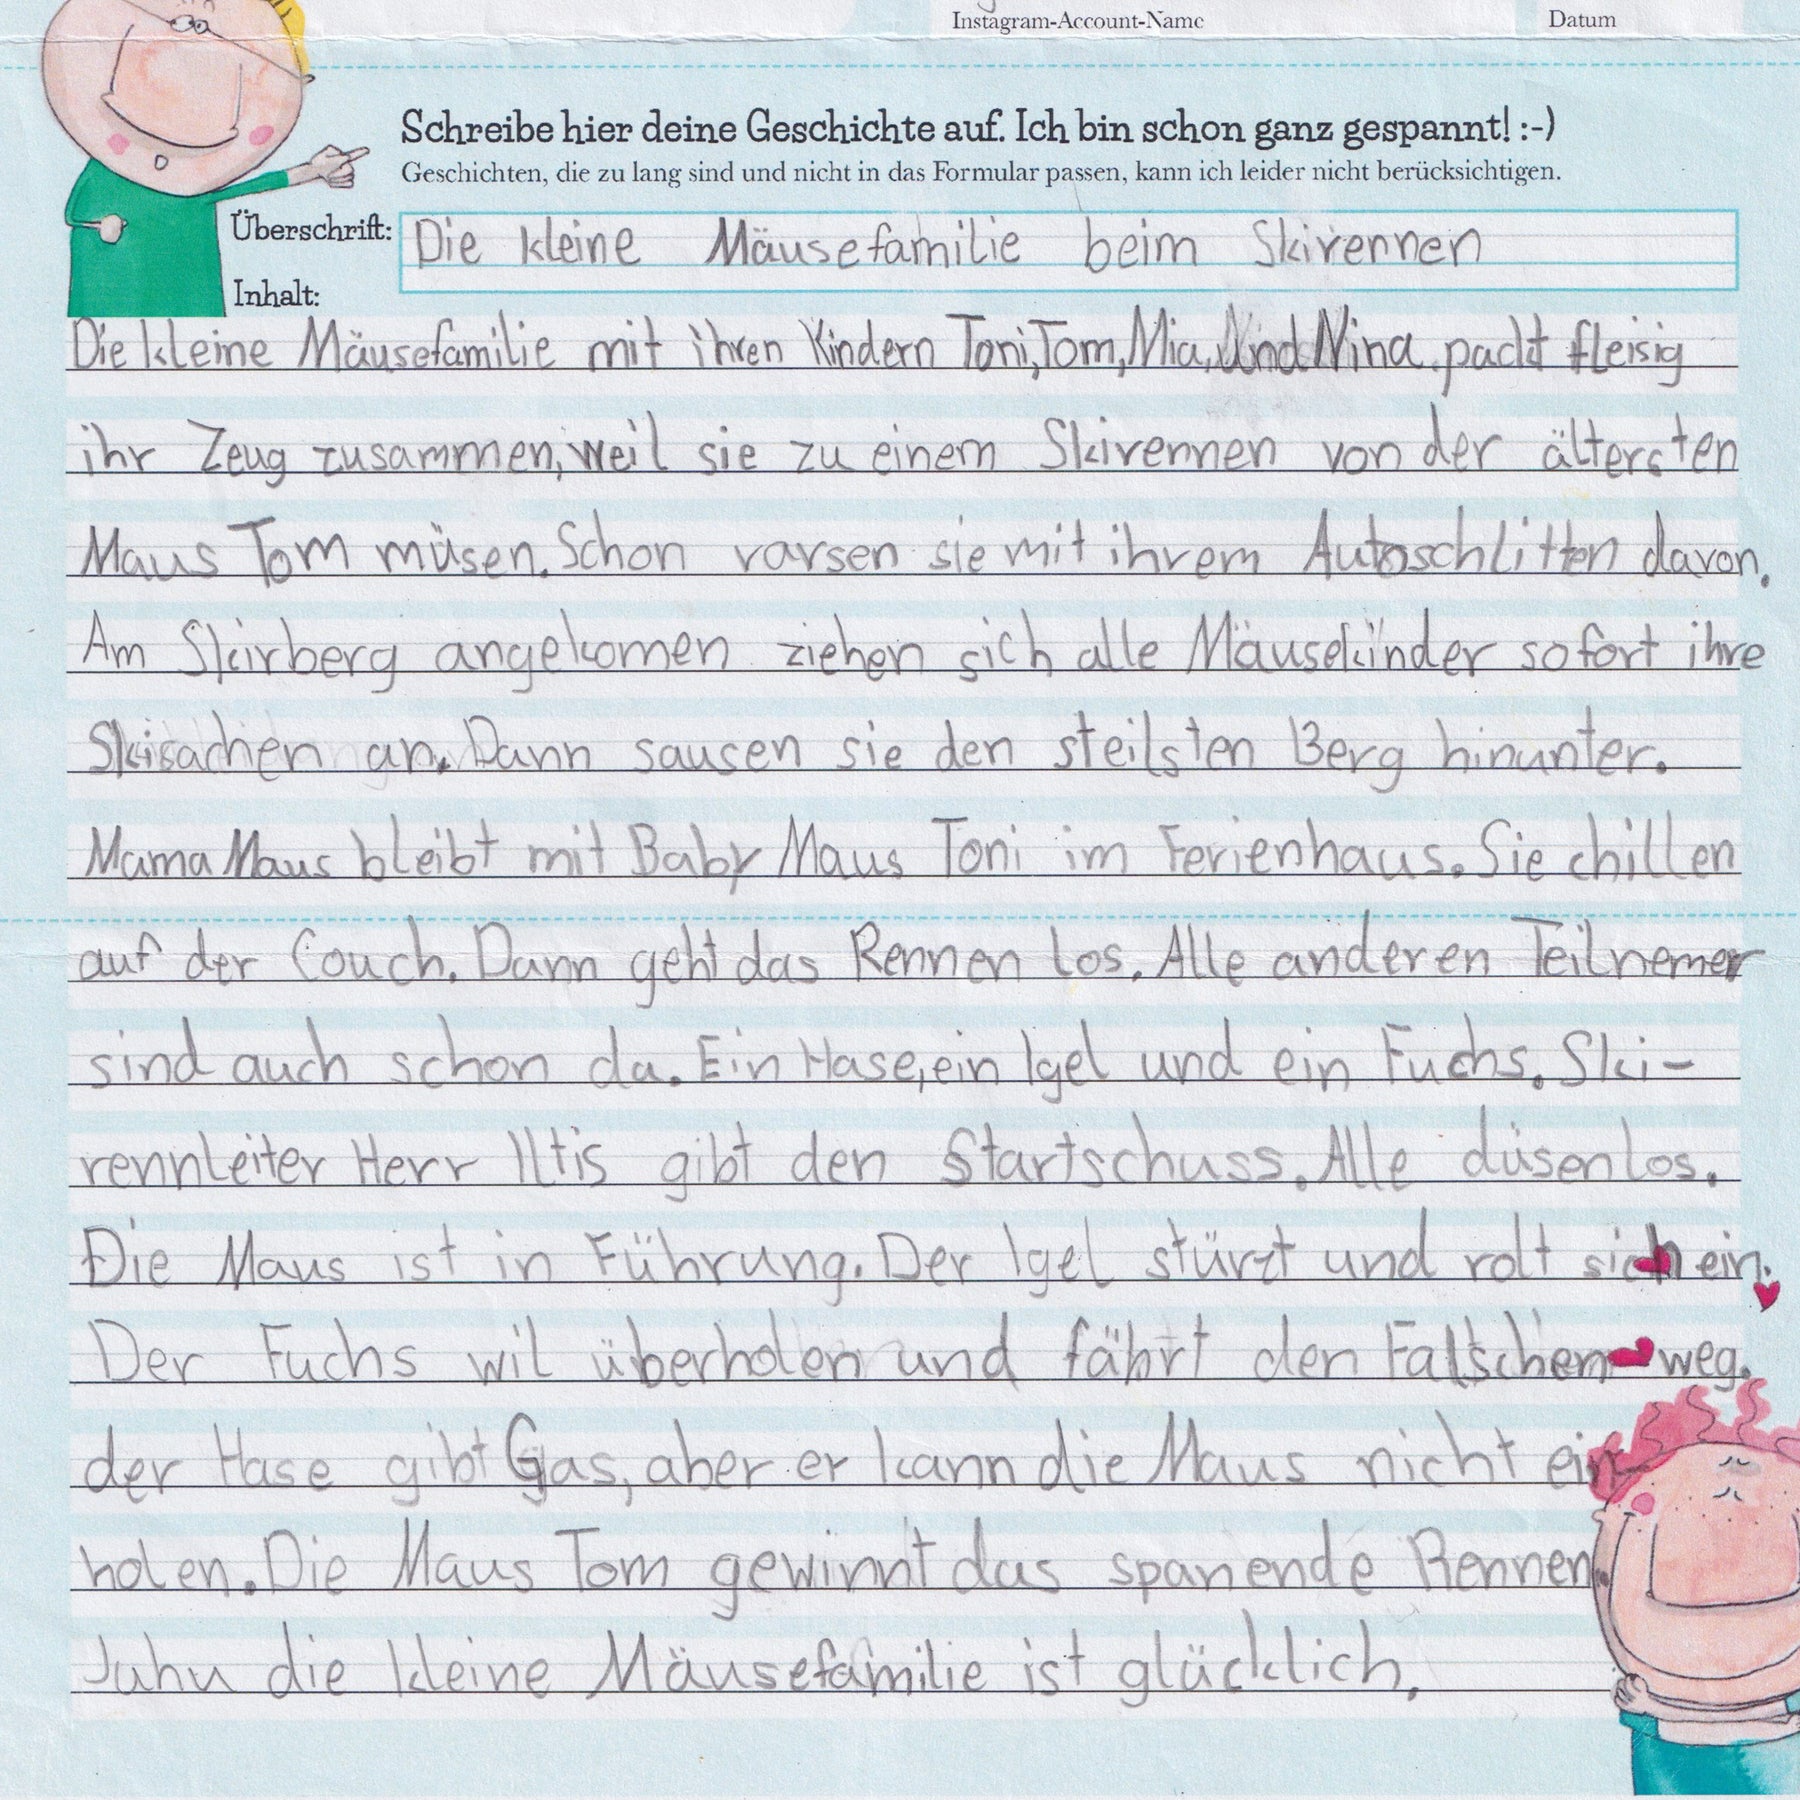 Instagram-Account-Name
Datum
Schreibe hier deine Geschichte auf. Ich bin schon ganz gespannt! :-)
Geschichten, die zu lang sind und nicht in das Formular passen, kann ich leider nicht berücksichtigen.
Überschrift: Die kleine Mäusefamilie beim Skirennen
Inhalt:
Die kleine Mäusefamilie mit ihren Kindern Toni, Tom, Mia, Und Nina. packt fleisig
ihr Zeug zusammen, weil sie zu einem Skirennen von der ältersten
Maus Tom müsen. Schon varsen sie mit ihrem Autoschlitten davon.
Am Skirberg angekomen ziehen sich alle Mäusekinder sofort ihre
Skisachen an. Dann sausen sie den steilsten Berg hinunter.
Mama Maus bleibt mit Baby Maus Toni im Ferienhaus. Sie chillen
auf der Couch. Dann geht das Rennen los. Alle anderen Teilnemer
sind auch schon da. Ein Hase, ein Igel und ein Fuchs. Ski-
rennleiter Herr Iltis gibt den Startschuss. Alle düsen los.
Die Maus ist in Führung. Der Igel stürzt und rolt sich ein.
Der Fuchs wil überholen und fährt den Falschen weg.
der Hase gibt Gas, aber er kann die Maus nicht ein
holen. Die Maus Tom gewinnt das spanende Rennen
Juhu die kleine Mäusefamilie ist glücklich.